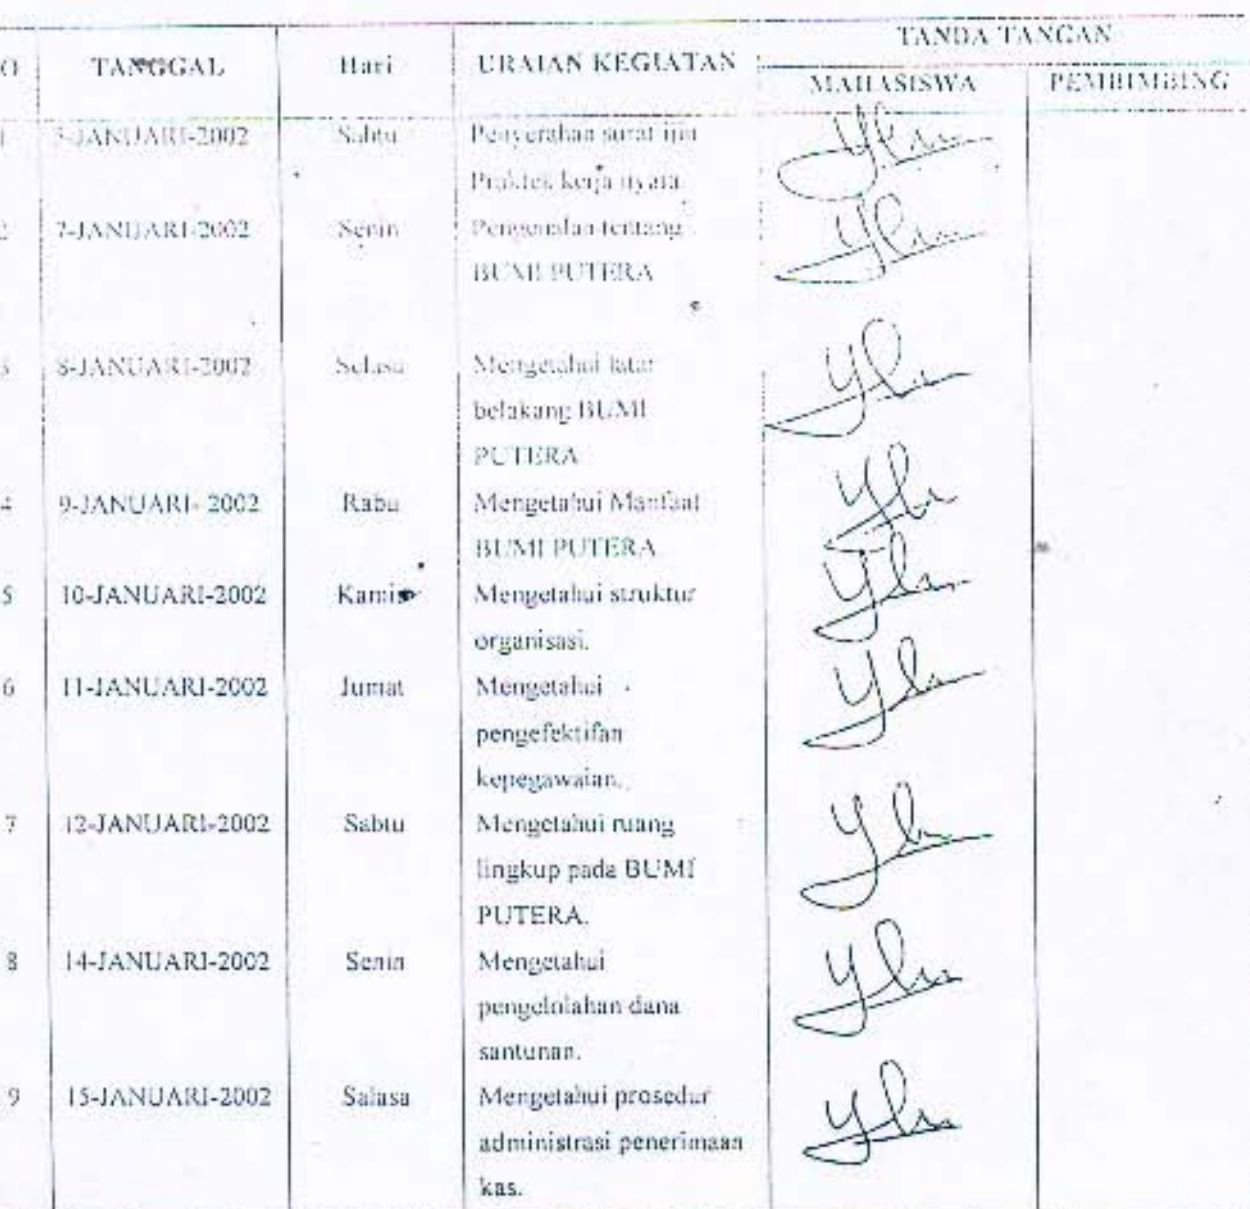 O TANGGAL Hari URAIAN KEGIATAN TANDA TANGAN
MAHASISWA PEMBIMBING
1 5-JANUARI-2002 Sabtu Penyerahan surat ijin
Praktek kerja nyata
2 7-JANUARI-2002 Senin Pengenalan tentang
BUMI PUTERA
3 8-JANUARI-2002 Selasa Mengetahui latar
belakang BUMI
PUTERA
4 9-JANUARI- 2002 Rabu Mengetahui Manfaat
BUMI PUTERA
5 10-JANUARI-2002 Kamis Mengetahui struktur
organisasi.
6 11-JANUARI-2002 Jumat Mengetahui
pengefektifan
kepegawaian.
7 12-JANUARI-2002 Sabtu Mengetahui ruang
lingkup pada BUMI
PUTERA.
8 14-JANUARI-2002 Senin Mengetahui
pengelolahan dana
santunan.
9 15-JANUARI-2002 Salasa Mengetahui prosedur
administrasi penerimaan
kas.